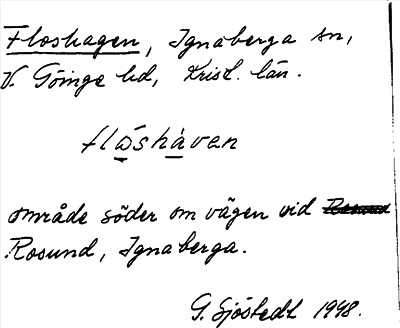 Floshagen, Ignaberga sn,
V. Göinge hd, Krist. län.
flåshàven
område söder om vägen vid
Rosund, Ignaberga.
G. Sjöstedt 1948.